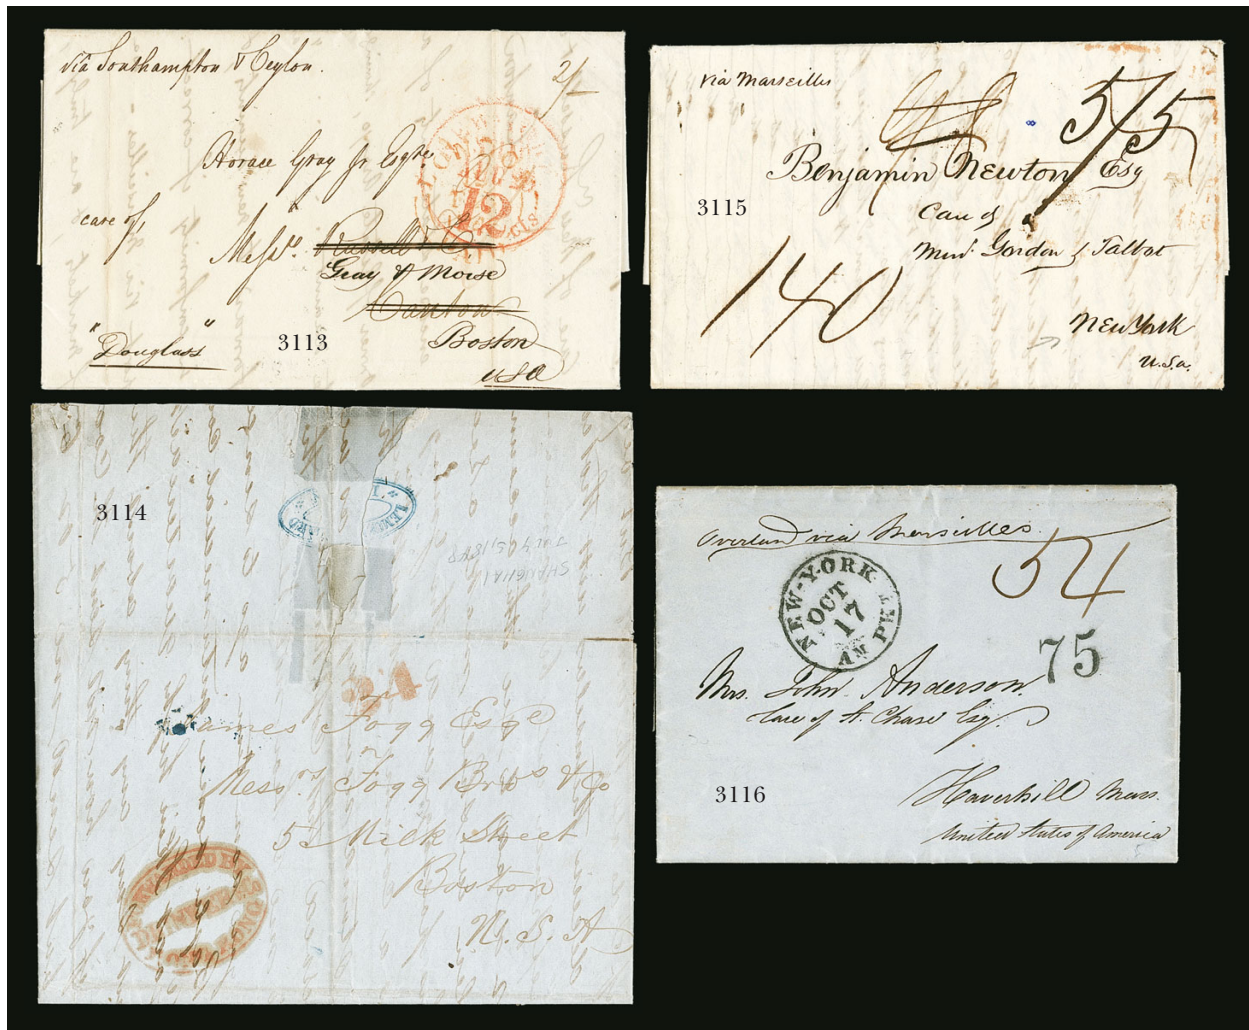 via Southampton & Ceylon.
2/-
Horace Gray Jr Esqre
care of,
Messrs. Russell & Co
Gray & Morse
Canton
Boston
USA
"Douglass"
12
cts
3113
via Marseilles
5/5
Benjamin Newton Esq
Care of
Gordon & Talbot
140
New York
U.S.a.
3115
3114
SHANGHAI
JULY 1848
24
James Fogg Esqe
Messrs Fogg Bros & Co
5 Milk Street
Boston
U.S.A
Overland via Marseilles.
54
NEW-YORK AM PKT
OCT
17
75
Mrs. John Anderson.
Care of A. Chase Esq.
3116
Haverhill Mass.
United States of America